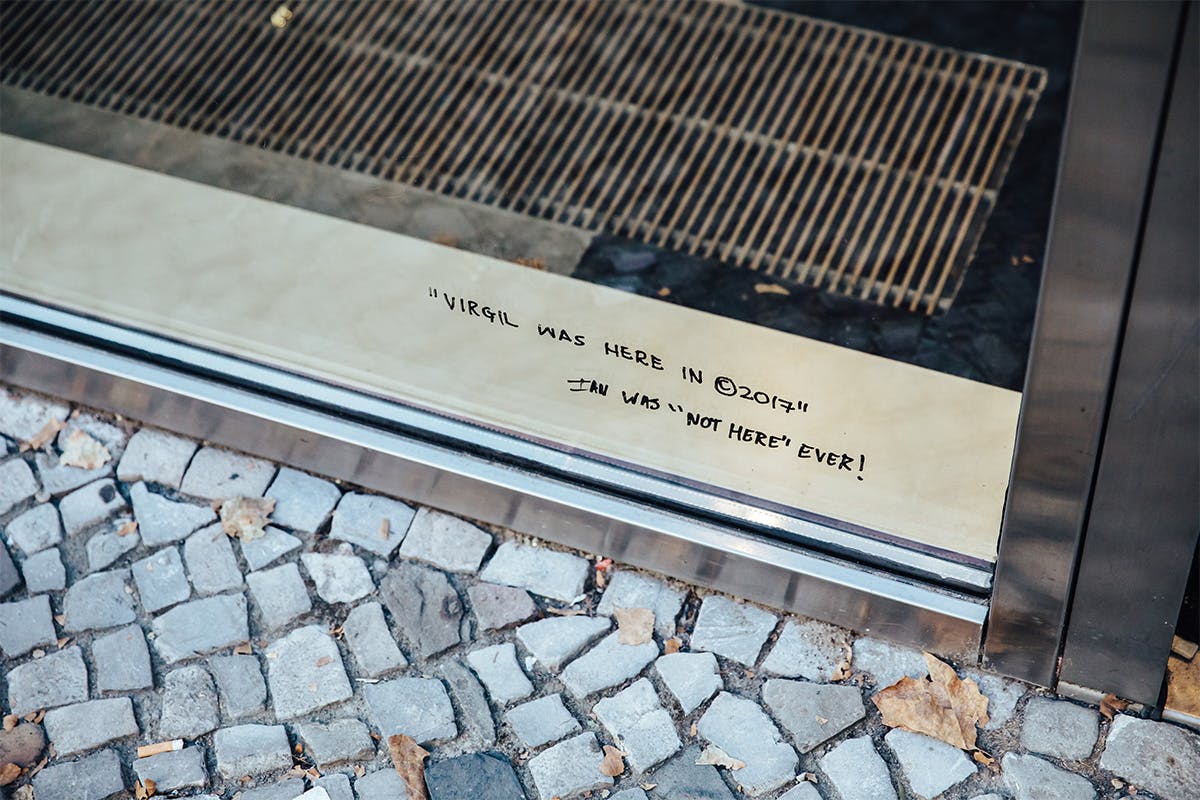 "VIRGIL WAS HERE IN ©2017"
IAN WAS "NOT HERE" EVER!